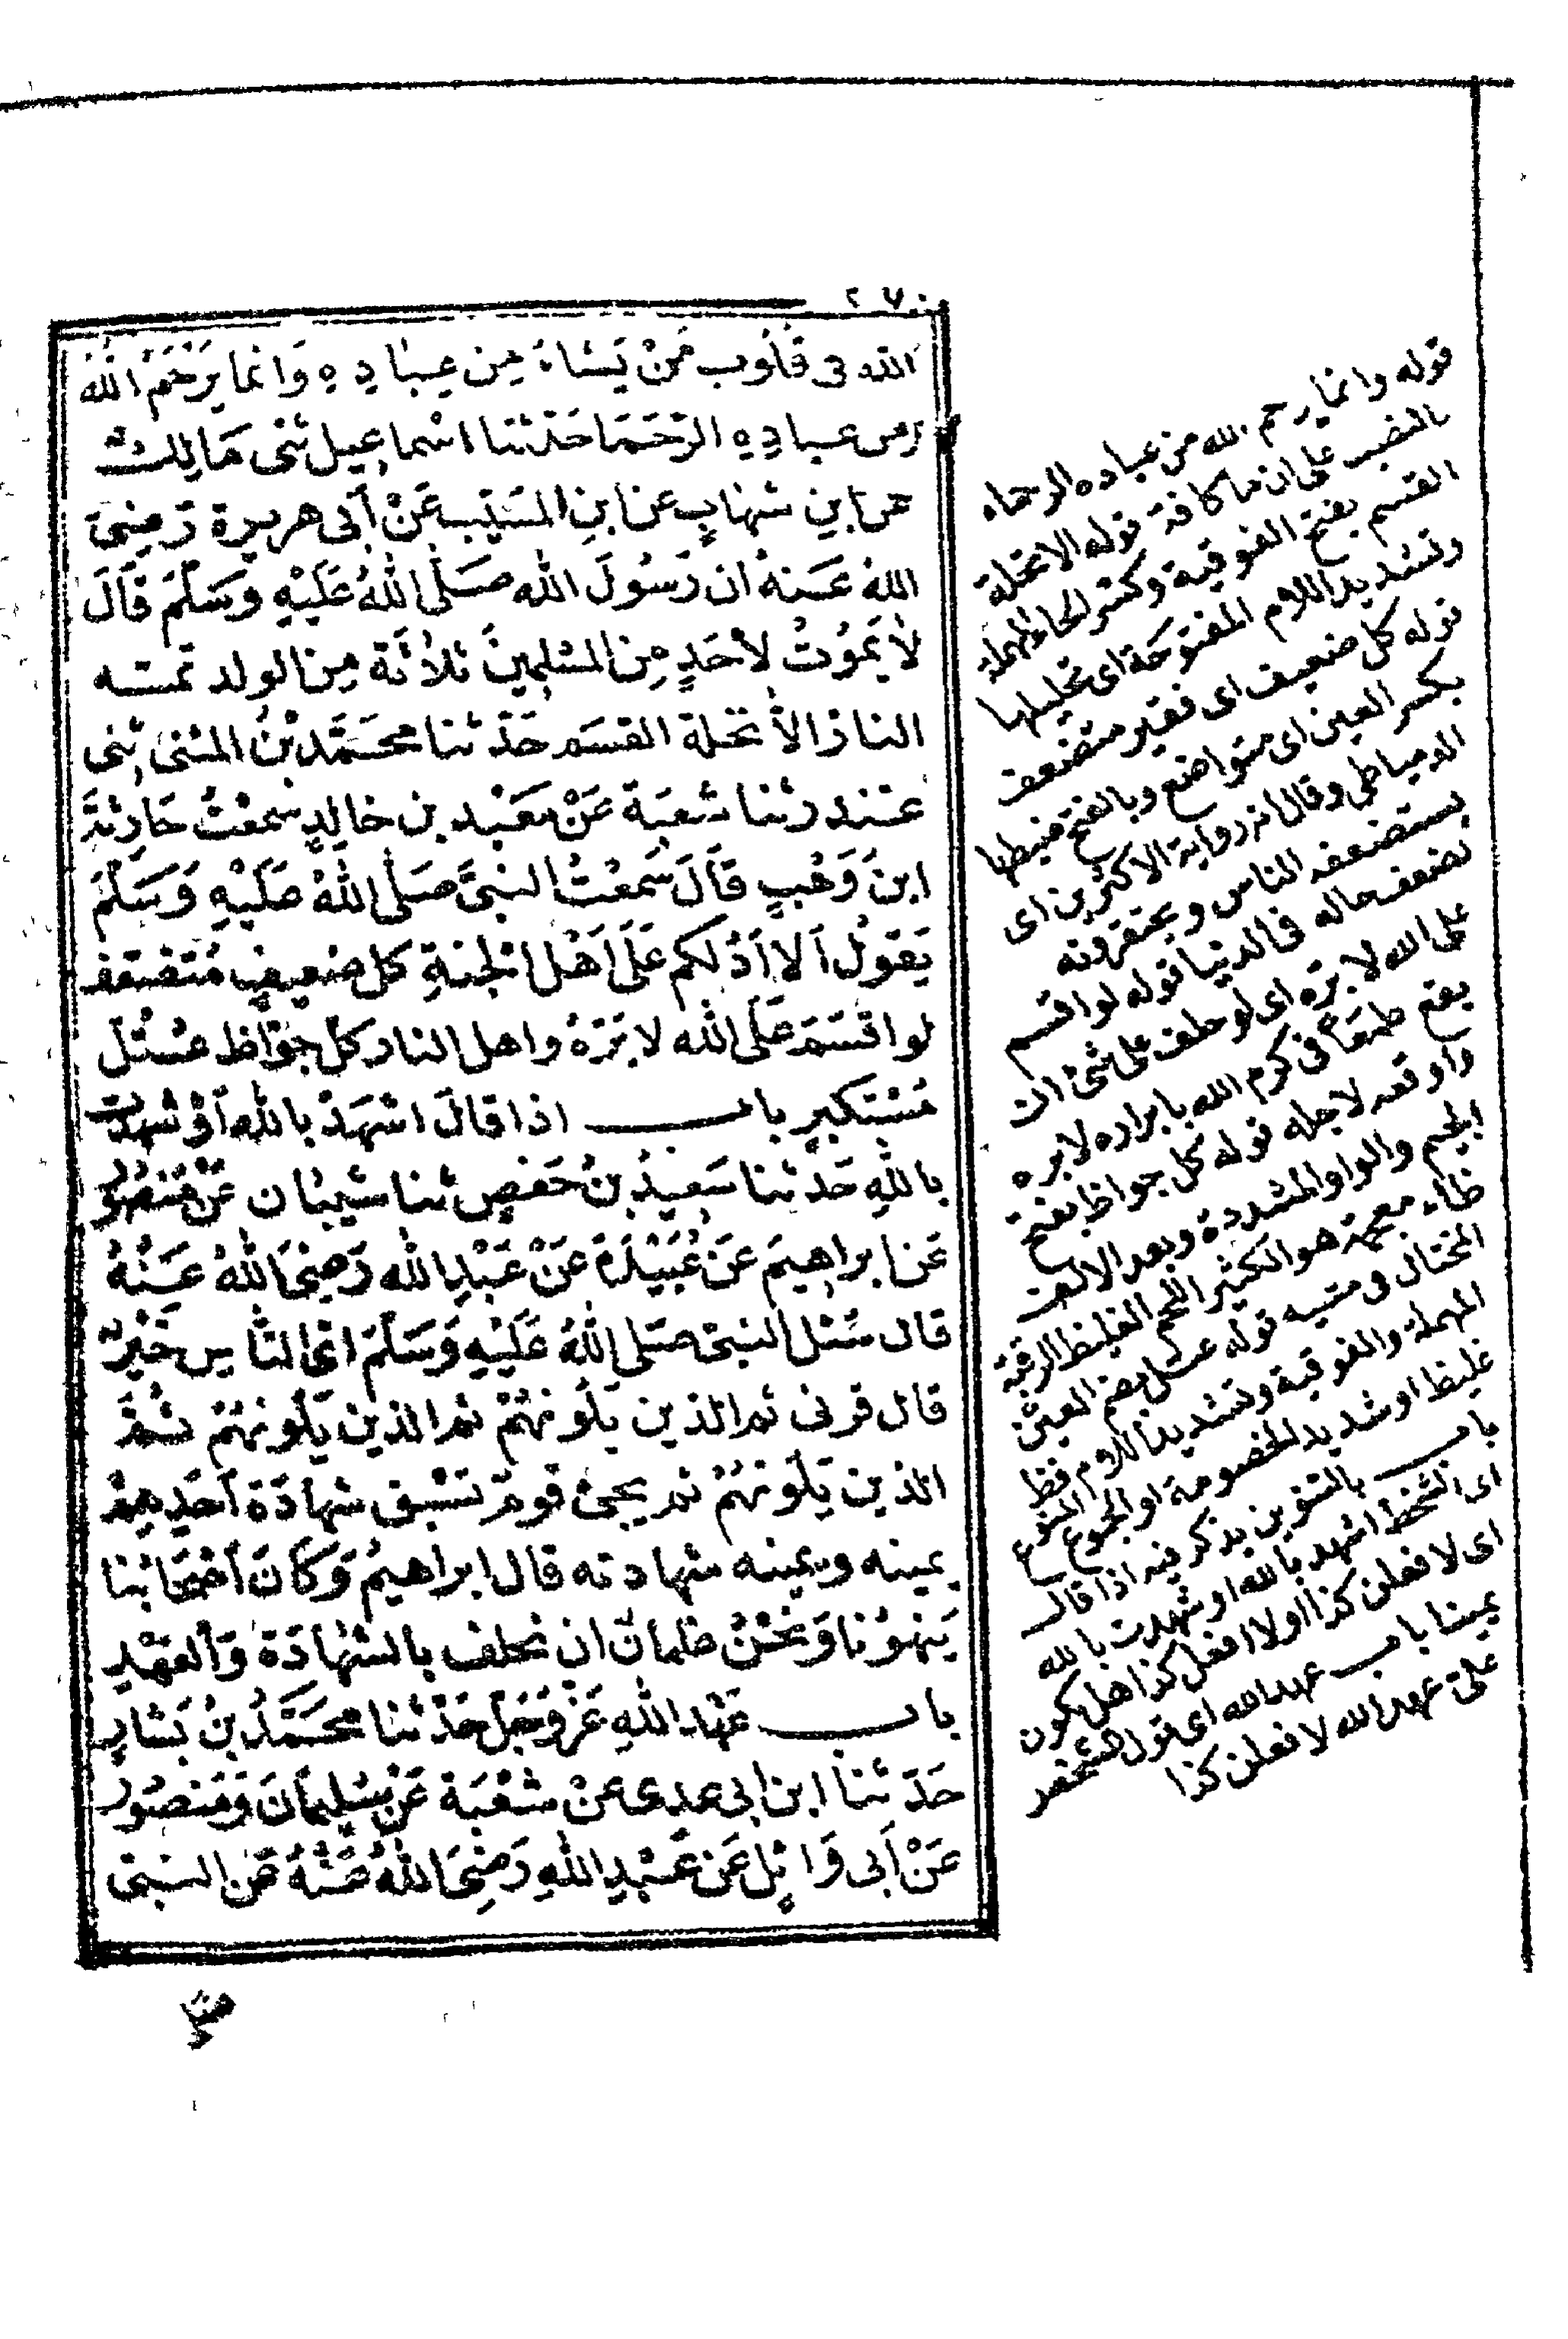 ٢٧٠
الله فى قُلُوب مَنْ يَشاءُ مِن عِبَادِهِ وَانما يَرْحَمُ اللهُ
من عبادِهِ الرّحَمَا حَدّثنا اسْماعِيل ثنى مَالِك
عن ابنِ شهَابٍ عن ابنِ المسَيّب عَنْ أبى هريرة رَضِىَ
اللهُ عَنهُ ان رَسُولَ الله صَلّى اللهُ عَلَيْهِ وَسَلّمَ قَالَ
لا يَمُوتُ لأحَدٍ مِن المسْلِمينَ ثلاثة مِن الولد تمسه
النار الا تحلة القسَم حَدّثنا محَمَّد بْنُ المثنى ثنى
غندر ثنا شعبَة عَنْ مَعْبَد بن خالدٍ سمعْتُ حَارثةَ
ابنَ وَهْبٍ قالَ سَمعْتُ النبىَّ صَلى اللهُ عَلَيْهِ وَسَلّمَ
يَقولُ اَلا اَدُلكم عَلَى اَهْل الجنةِ كل ضَعِيفٍ مُتضعف
لو اقسَمَ عَلَى الله لابَرّهُ واهل النار كلّ جَوّاظ عُتُلّ
مُسْتَكبِرٍ باب اذا قالَ اشهَدُ بالله اَوْ شهِدْتُ
باللهِ حَدّثنا سَعِيدُ بنُ حَفصٍ ثنا شيبَان عَنْ مَنصُور
عَن ابراهِيمَ عَن عُبَيْدَةَ عَنْ عَبْدِ الله رَضِىَ اللهُ عَنْهُ
قال سُئل النبىّ صَلى اللهُ عَلَيْهِ وَسَلّمَ اىّ النّاس خَيْرٌ
قال قرنى ثم الذين يَلونهُمْ ثم الذين يَلُونهُمْ ثُمَّ
الذين يَلونهُمْ ثم يجئ قومٌ تسْبق شهادَة اَحَدِهِمْ
يمينه ويمينه شهادته قال ابراهيمُ وَكانَ اَصْحَابُنا
يَنهوْنا وَنحْنُ غلمانٌ ان نحلف بالشهَادَة وَالعَهْدِ
باب عَهْد اللهِ عَزّ وَجَلّ حَدّثنا محَمَّدُ بنُ بَشارٍ
حَدّثنا ابن ابى عدى عنْ شعْبَة عَنْ سُلِيمَانَ وَمَنصُور
عَنْ اَبى وَائِل عَن عَبْدِ اللهِ رَضِىَ اللهُ عَنْهُ عَن النبىّ
قوله وانما يرحم الله من عباده الرحماء
بالنصب على ان ما كافة قوله الا تحلة
القسم بفتح الفوقية وكسر الحاء المهملة
وتشديد اللام المفتوحة اى تحليلها
قوله كل ضعيف اى فقير متضعف
بكسر العين اى متواضع وبالفتح ضبطها
الدمياطى وقال انه رواية الاكثرين اى
يستضعفه الناس ويحتقرونه
لضعف حاله فى الدنيا قوله لو اقسم
على الله لابرّه اى لو حلف على شئ ان
يقع طمعا فى كرم الله بابراره لابره
واوقعه لاجله قوله كل جواظ بفتح
الجيم والواو المشددة وبعد الالف
ظاء معجمة هو الكثير اللحم الغليظ الرقبة
المختال فى مشيه قوله عتل بضم العين
المهملة والفوقية وتشديد اللام فظ
غليظ او شديد الخصومة او الجموع المنوع
باب بالتنوين يذكر فيه اذا قال
اى الشخص اشهد بالله او شهدت بالله
اى لافعلن كذا او لا افعل كذا هل يكون
يمينا باب عهد الله اى قول الشخص
علىّ عهد الله لافعلن كذا